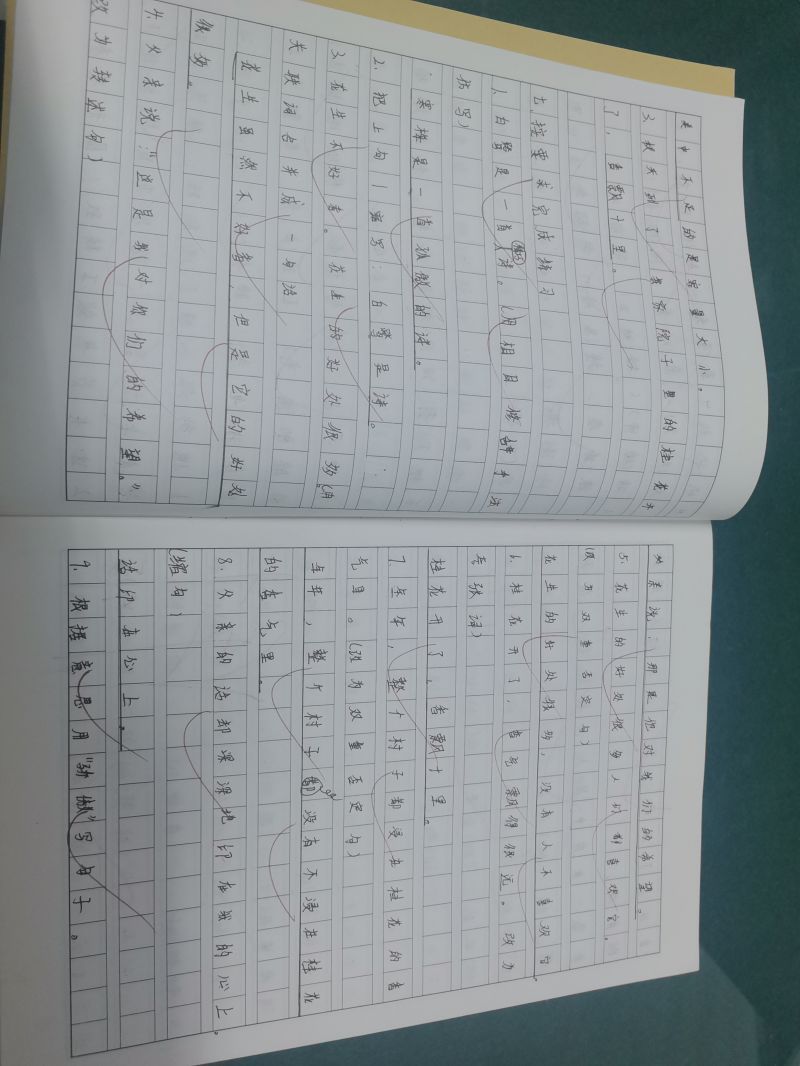 不足的是容量大小。
3、秋天到了,院子里的桂花开
了,香飘十里。
七、按要求完成练习
1、白鹭是一首诗。(用相同修辞手法
仿写)
是一首孤傲的诗。
2、把上句写:白鹭是诗。
3、花生不好看。花生的好处很多(用
关联词合并成一句话
花生虽然不好看,但是它的好处
很多。
4、父亲说:“这是我对你们的希望。”
改为转述句)
父亲说:那是他对我们的希望。
5、花生的好处很多人们都喜欢它。
(改为双重否定句)
花生的好处很多,没有人不喜欢它。
6、桂花开了,香气飘得很远。改为
夸张词)
桂花开了,香飘十里。
7、全年,整个村子都浸在桂花的香
气里。(改为双重否定句)
全年,整个村子都没有不浸在桂花
的香气里。
8、父亲的话却深深地印在我的心上。
(缩句)
话印在心上。
9、根据意思用“骄傲”写句子。